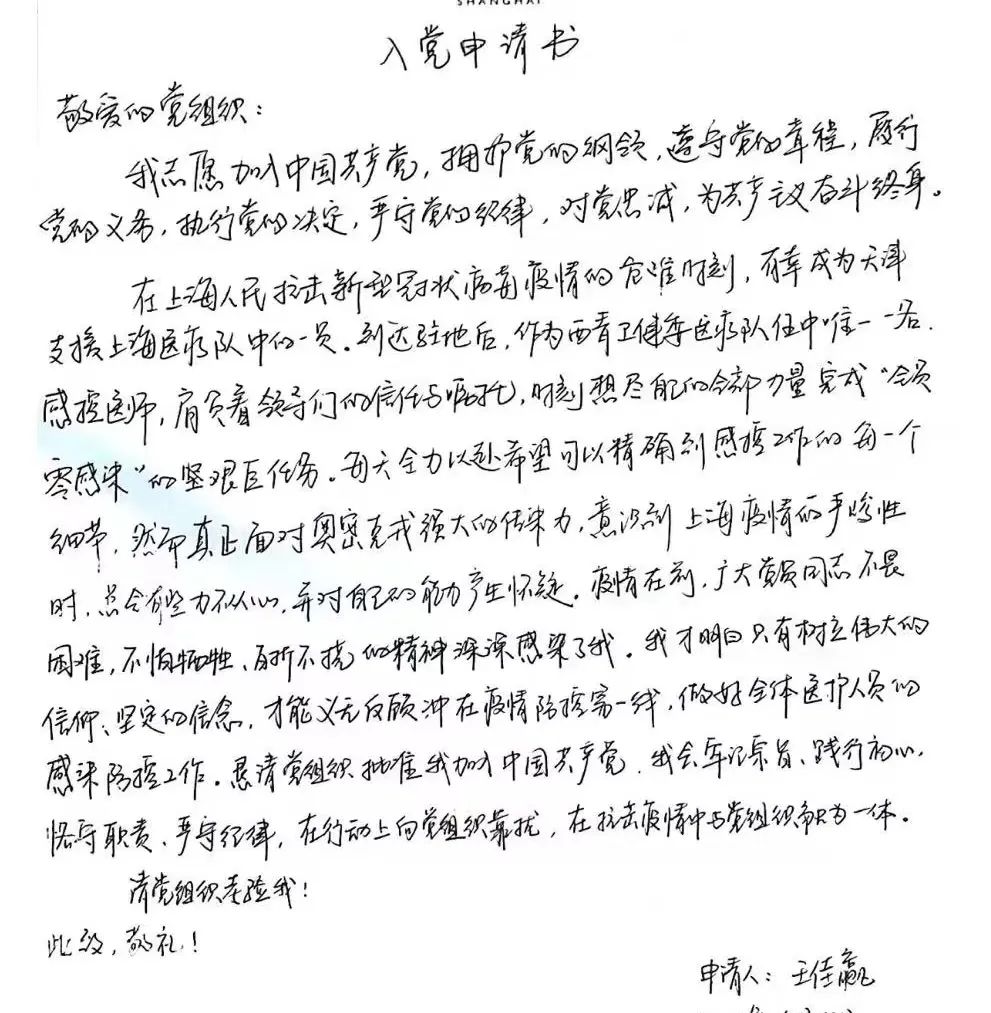 SHANGHAI
入党申请书
敬爱的党组织：
我志愿加入中国共产党，拥护党的纲领，遵守党的章程，履行
党的义务，执行党的决定，严守党的纪律，对党忠诚，为共产主义奋斗终身。
在上海人民抗击新型冠状病毒疫情的危难时刻，有幸成为天津
支援上海医疗队中的一员。到达驻地后，作为西青卫健委医疗队伍中唯一一名
感控医师，肩负着领导们的信任与嘱托，时刻想尽配的全部力量完成“全员
零感染”的坚艰巨任务。每天全力以赴希望可以精确到感控工作的每一个
细节，然而真正面对奥密克戎强大的传染力，意识到上海疫情的严峻性
时，总会力不从心，并对自己的能力产生怀疑。疫情在前，广大党员同志不畏
困难，不怕牺牲、百折不挠的精神深深感染了我。我才明白只有树立伟大的
信仰、坚定的信念，才能义无反顾冲在疫情防控第一线，做好全体医护人员的
感染防控工作。恳请党组织批准我加入中国共产党，我会牢记宗旨、践行初心、
恪守职责、严守纪律，在行动上向党组织靠拢，在抗击疫情中与党组织融为一体。
请党组织考验我！
此致，敬礼！
申请人：王佳赢